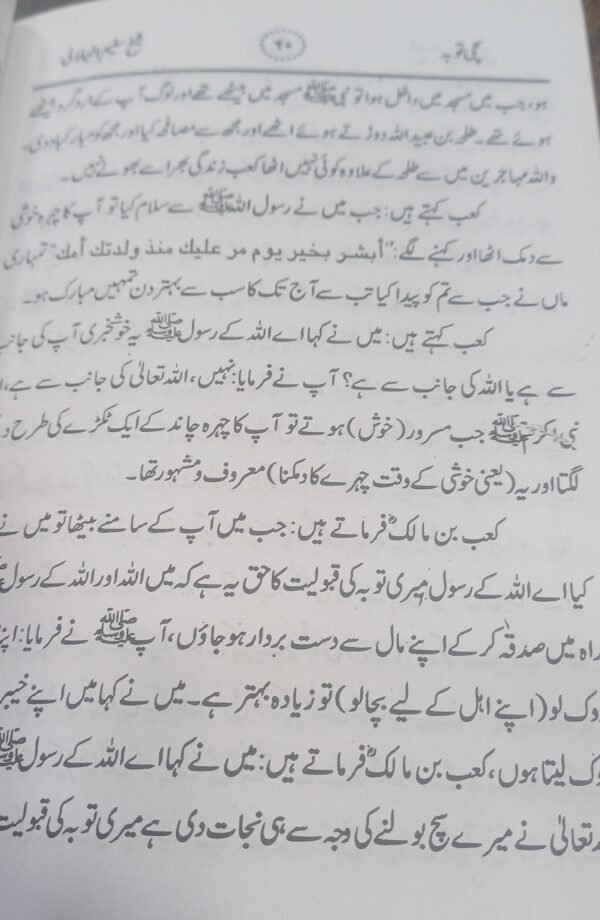 سچی توبہ ۲۰ شیخ سلیم الہلالی
ہو، جب میں مسجد میں داخل ہوا تو نبی ﷺ مسجد میں بیٹھے تھے اور لوگ آپ کے ارد گرد بیٹھے
ہوئے تھے۔ طلحہ بن عبید اللہ دوڑتے ہوئے اٹھے اور مجھ سے مصافحہ کیا اور مجھ کو مبارکباد دی۔
واللہ مہاجرین میں سے طلحہ کے علاوہ کوئی نہیں اٹھا کعب زندگی بھر اسے بھولے نہیں۔
کعب کہتے ہیں: جب میں نے رسول اللہ ﷺ سے سلام کیا تو آپ کا چہرہ خوشی
سے دمک اٹھا اور کہنے لگے: "أبشر بخير يوم مر عليك منذ ولدتك أمك" تمہاری
ماں نے جب سے تم کو پیدا کیا تب سے آج تک کا سب سے بہتر دن تمہیں مبارک ہو۔
کعب کہتے ہیں: میں نے کہا اے اللہ کے رسول ﷺ یہ خوشخبری آپ کی جانب
سے ہے یا اللہ کی جانب سے ہے؟ آپ نے فرمایا: نہیں، اللہ تعالیٰ کی جانب سے ہے،
نبی کرم ﷺ جب مسرور (خوش) ہوتے تو آپ کا چہرہ چاند کے ایک ٹکڑے کی طرح
لگتا اور یہ (یعنی خوشی کے وقت چہرے کا دمکنا) معروف و مشہور تھا۔
کعب بن مالکؓ فرماتے ہیں: جب میں آپ کے سامنے بیٹھا تو میں نے
کیا اے اللہ کے رسول میری توبہ کی قبولیت کا حق یہ ہے کہ میں اللہ اور اللہ کے رسول
راہ میں صدقہ کر کے اپنے مال سے دست بردار ہو جاؤں، آپ ﷺ نے فرمایا:
وک لو (اپنے اہل کے لیے بچا لو) تو زیادہ بہتر ہے۔ میں نے کہا میں اپنے خیبر
وک لیتا ہوں، کعب بن مالکؓ فرماتے ہیں: میں نے کہا اے اللہ کے رسول ﷺ
تعالیٰ نے میرے سچ بولنے کی وجہ سے ہی نجات دی ہے میری توبہ کی قبولیت